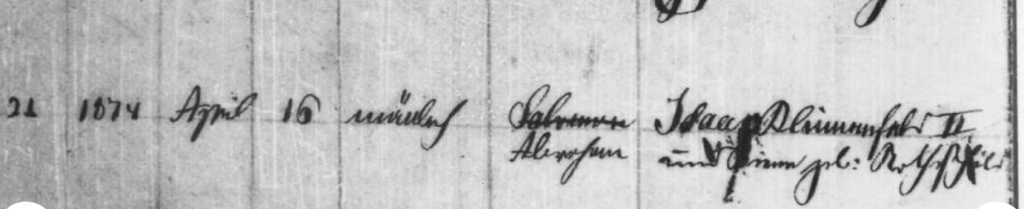 21 1874 April 16 männlich Salomon Isaac Blumenfeld II
Abraham und geb: Rothschild